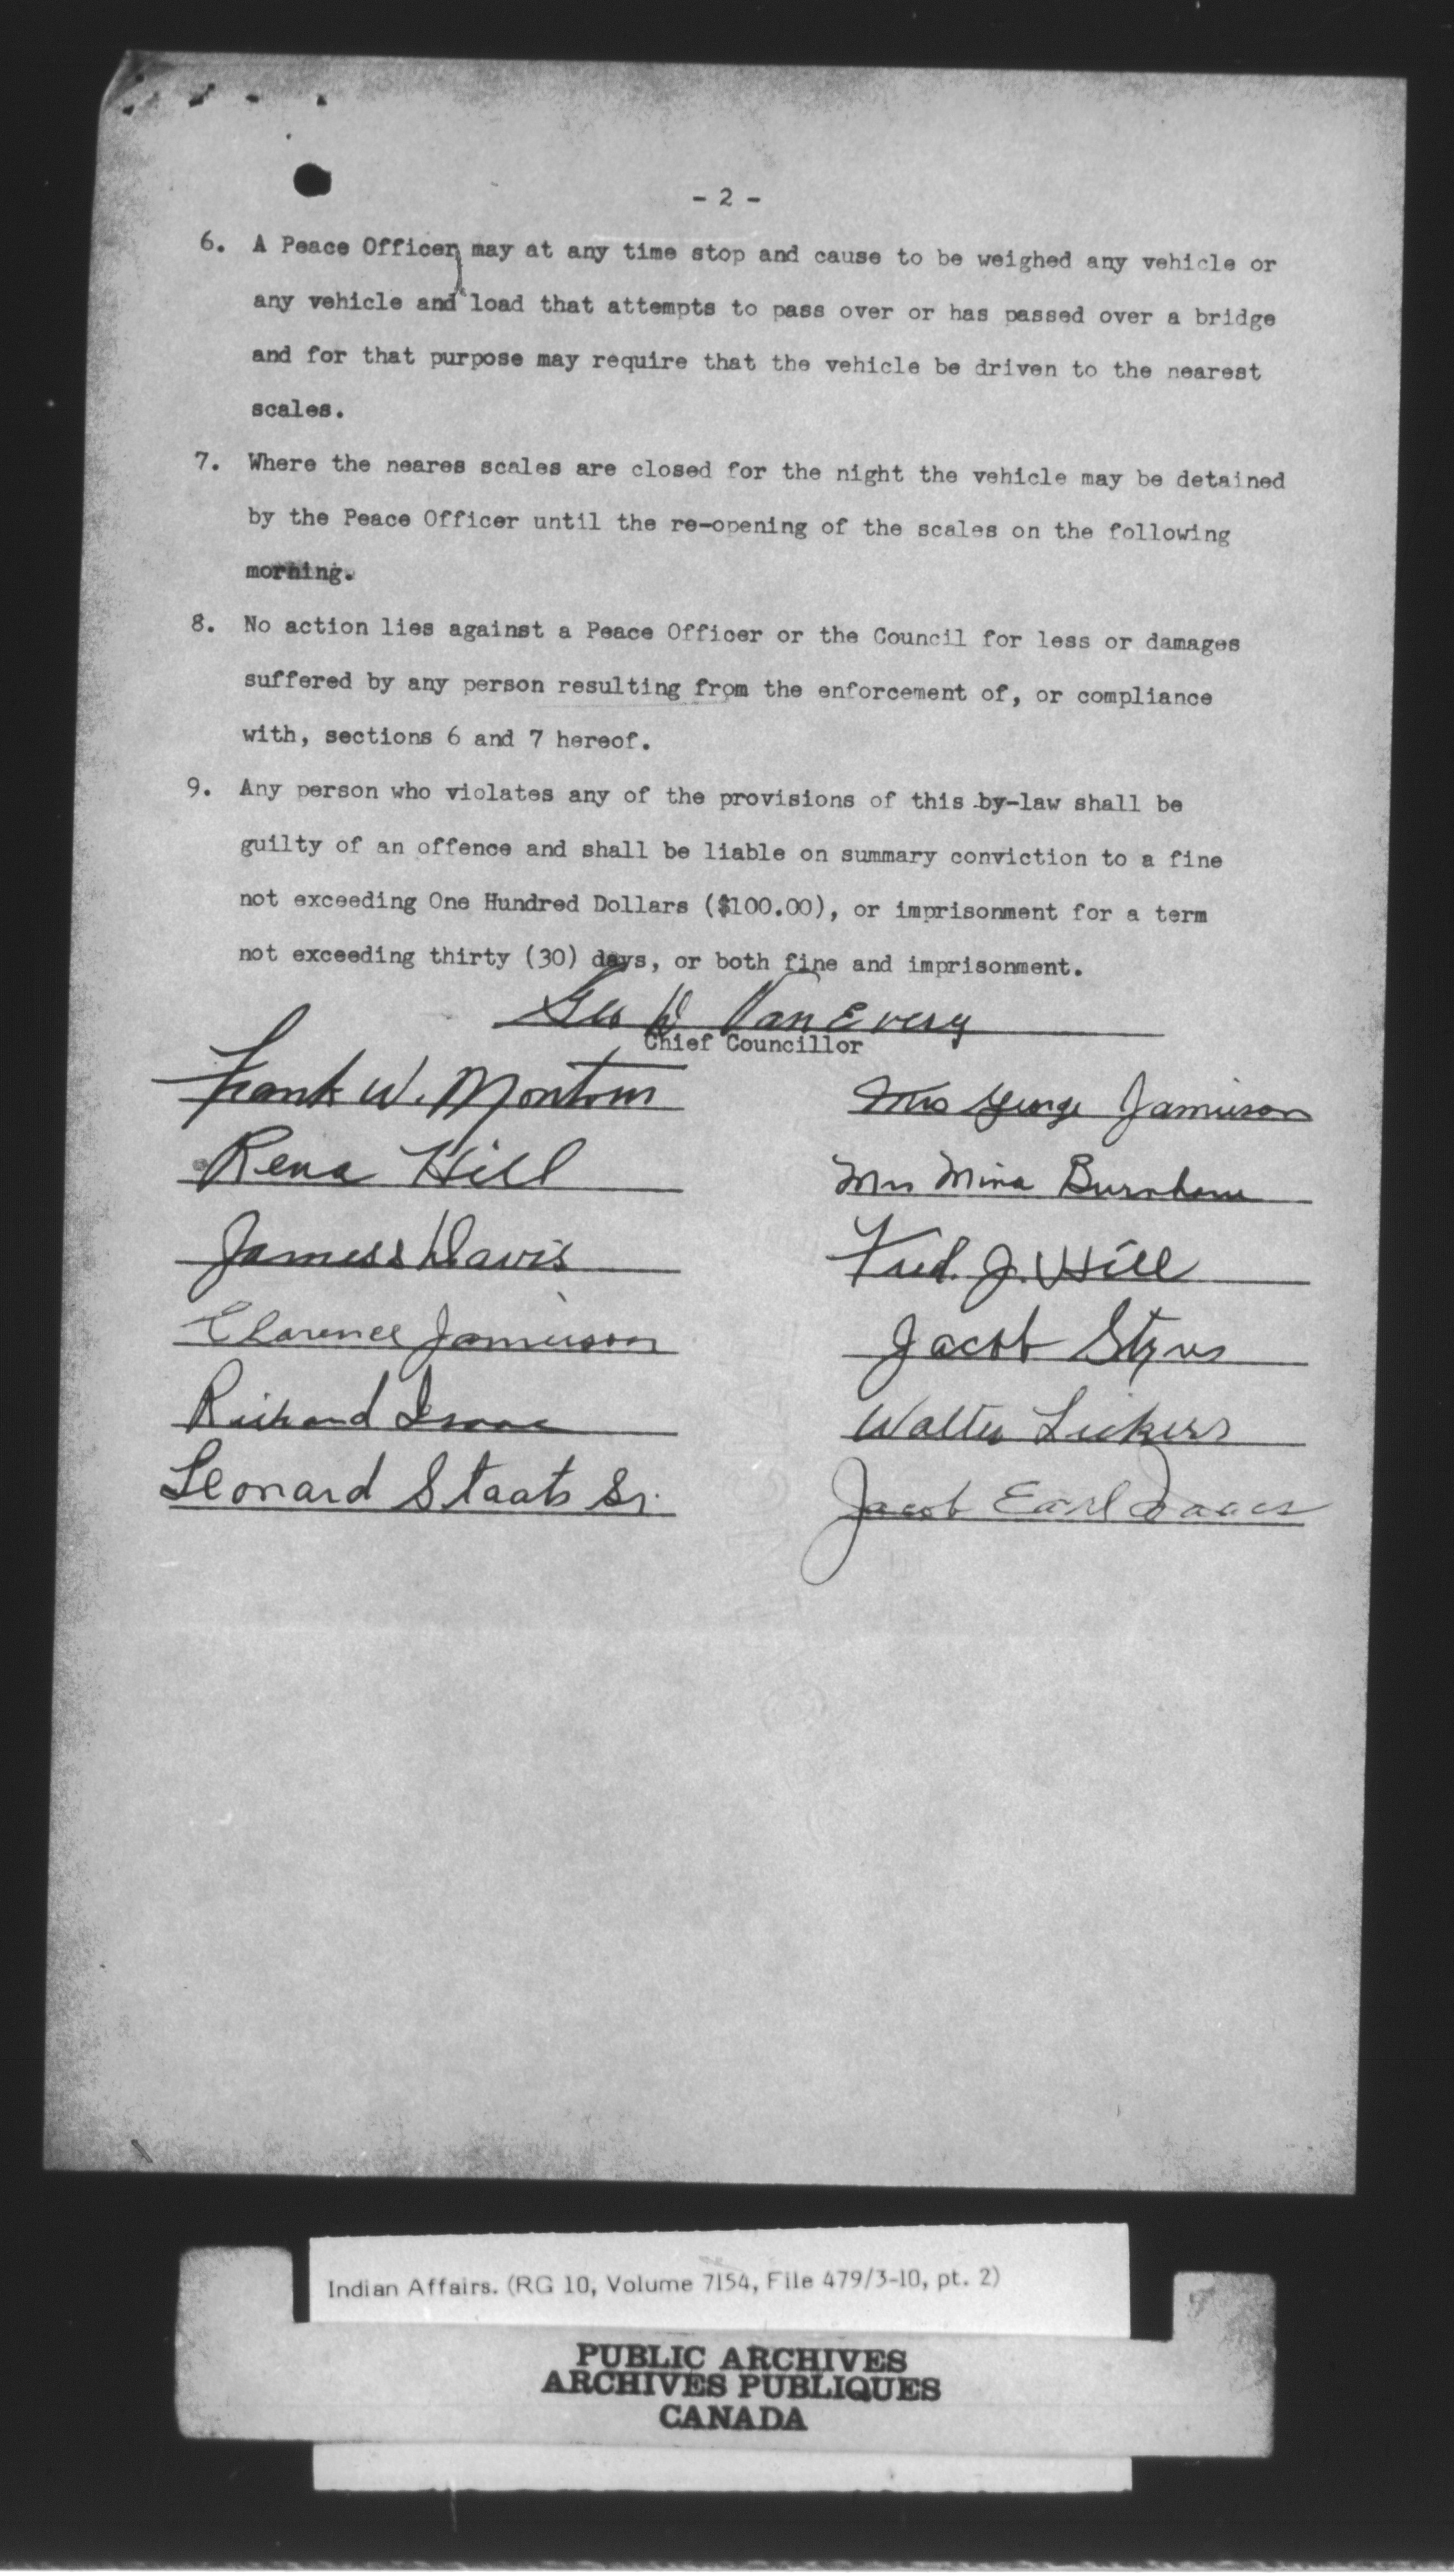 - 2 -
6. A Peace Officer may at any time stop and cause to be weighed any vehicle or
any vehicle and load that attempts to pass over or has passed over a bridge
and for that purpose may require that the vehicle be driven to the nearest
scales.
7. Where the neares scales are closed for the night the vehicle may be detained
by the Peace Officer until the re-opening of the scales on the following
morning.
8. No action lies against a Peace Officer or the Council for less or damages
suffered by any person resulting from the enforcement of, or compliance
with, sections 6 and 7 hereof.
9. Any person who violates any of the provisions of this by-law shall be
guilty of an offence and shall be liable on summary conviction to a fine
not exceeding One Hundred Dollars ($100.00), or imprisonment for a term
not exceeding thirty (30) days, or both fine and imprisonment.
Geo D VanEvery
Chief Councillor
Frank W. Montour
Mrs George Jamieson
Rena Hill
Mrs Mina Burnham
James Davis
Fred. J. Hill
Clarence Jamieson
Jacob Styres
Richard Isaac
Walter Lickers
Leonard Staats Sr.
Jacob Earl Isaacs
Indian Affairs. (RG 10, Volume 7154, File 479/3-10, pt. 2)
PUBLIC ARCHIVES
ARCHIVES PUBLIQUES
CANADA